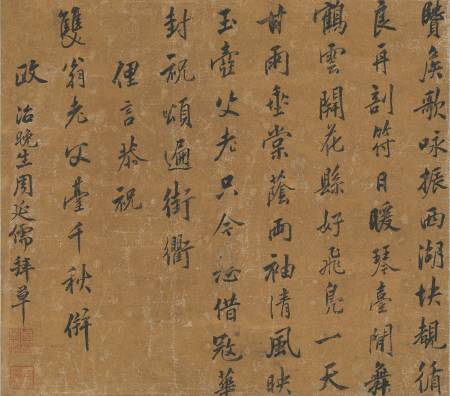 矦歌咏振西湖快覩循
良再剖符日暖琴臺閒舞
鶴雲開花縣好飛鳧一天
甘雨垂棠蔭兩袖清風映
玉壺父老只今借寇華
封祝頌遍街衢
俚言恭祝
雙翁老父臺千秋併
政 治晚生周延儒拜草